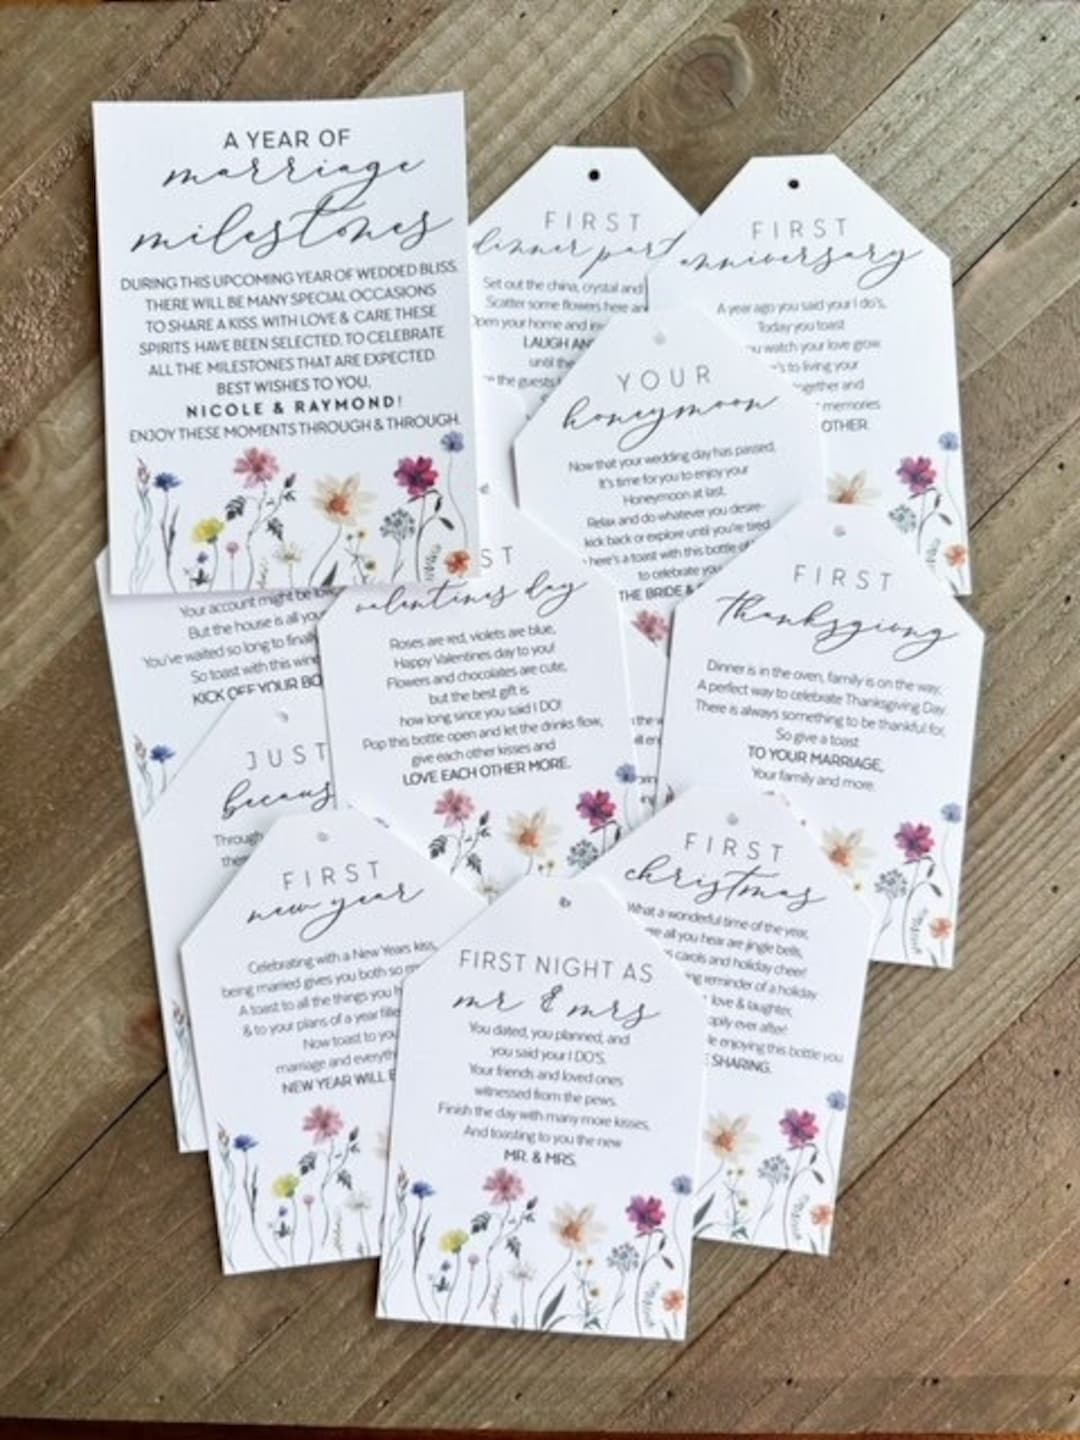 A YEAR OF
marriage
milestones
DURING THIS UPCOMING YEAR OF WEDDED BLISS,
THERE WILL BE MANY SPECIAL OCCASIONS
TO SHARE A KISS. WITH LOVE & CARE THESE
SPIRITS HAVE BEEN SELECTED, TO CELEBRATE
ALL THE MILESTONES THAT ARE EXPECTED.
BEST WISHES TO YOU,
NICOLE & RAYMOND!
ENJOY THESE MOMENTS THROUGH & THROUGH.
FIRST
dinner part
Set out the china, crystal and
Scatter some flowers here an
Open your home and in
LAUGH AN
until the
the guests
FIRST
anniversary
A year ago you said your I do's,
Today you toast
you watch your love grow
to living your
together and
memories.
OTHER.
YOUR
honeymoon
Now that your wedding day has passed,
It's time for you to enjoy your
Honeymoon at last.
Relax and do whatever you desire-
kick back or explore until you're tired.
here's a toast with this bottle of
to celebrate you
THE BRIDE &
Your account might be low
But the house is all you
You've waited so long to finall
So toast with this wine
KICK OFF YOUR BO
ST
valentines day
Roses are red, violets are blue,
Happy Valentines day to you!
Flowers and chocolates are cute,
but the best gift is
how long since you said I DO!
Pop this bottle open and let the drinks flow,
give each other kisses and
LOVE EACH OTHER MORE.
FIRST
thanksgiving
Dinner is in the oven, family is on the way,
A perfect way to celebrate Thanksgiving Day.
There is always something to be thankful for,
So give a toast
TO YOUR MARRIAGE,
Your family and more.
JUST
becaus
Through
there
FIRST
new year
Celebrating with a New Years kiss,
being married gives you both so m
A toast to all the things you h
& to your plans of a year fille
Now toast to you
marriage and everyth
NEW YEAR WILL B
FIRST
christmas
What a wonderful time of the year,
all you hear are jingle bells,
carols and holiday cheer!
reminder of a holiday
love & laughter,
happily ever after!
enjoying this bottle you
SHARING.
FIRST NIGHT AS
mr & mrs
You dated, you planned, and
you said your I DO'S.
Your friends and loved ones
witnessed from the pews.
Finish the day with many more kisses,
And toasting to you the new
MR. & MRS.